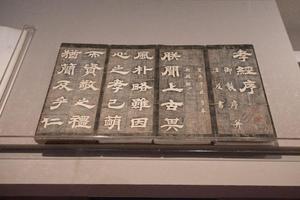 孝經序
御製序并
注及書
朕聞上古其
風朴略雖因
心之孝已萌
而資敬之禮
猶簡及乎仁